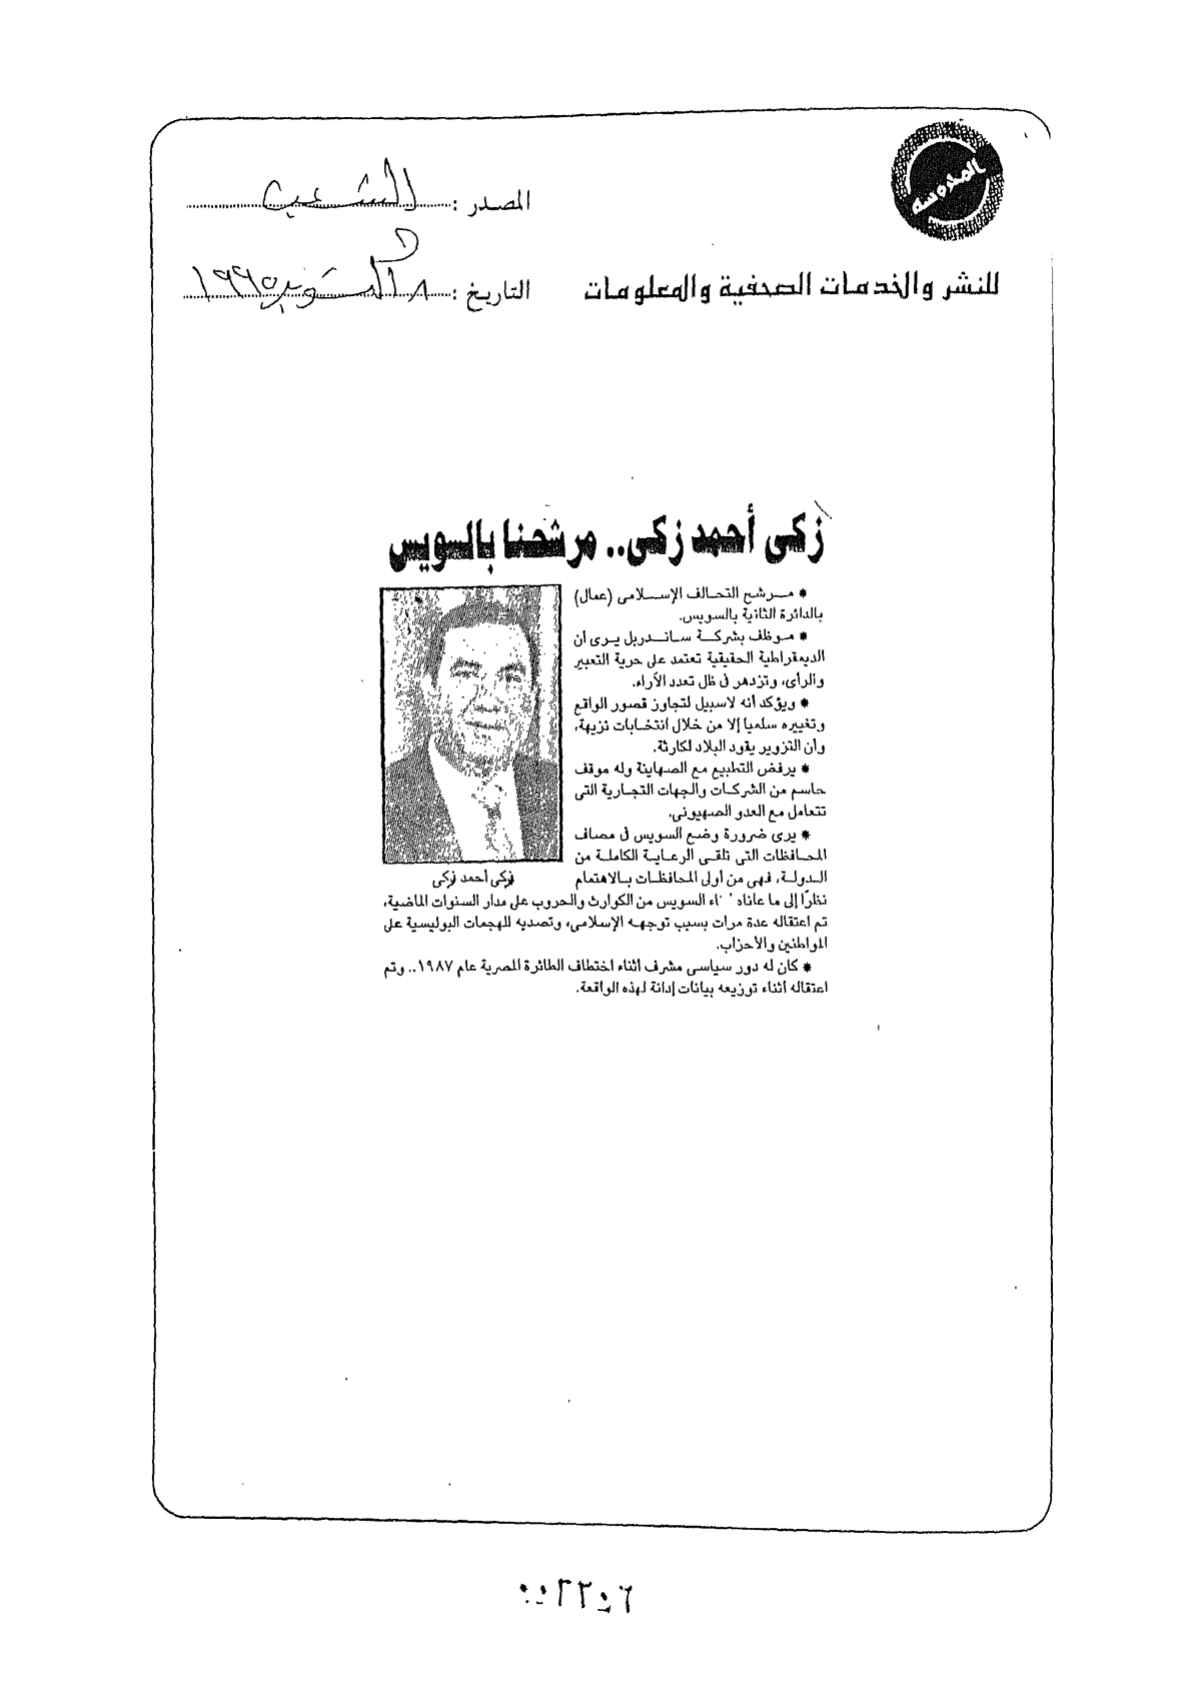 المحروسه
للنشر والخدمات الصحفية والمعلومات
المصدر : الشعب
التاريخ : ٨ اكتوبر ١٩٩٥
زكى أحمد زكى.. مرشحنا بالسويس
* مرشح التحالف الإسلامى (عمال)
بالدائرة الثانية بالسويس.
* موظف بشركة ساندربل يرى أن
الديمقراطية الحقيقية تعتمد على حرية التعبير
والرأى، وتزدهر فى ظل تعدد الآراء.
* ويؤكد أنه لاسبيل لتجاوز قصور الواقع
وتغييره سلميا إلا من خلال انتخابات نزيهة،
وأن التزوير يقود البلاد لكارثة.
* يرفض التطبيع مع الصهاينة وله موقف
حاسم من الشركات والجهات التجارية التى
تتعامل مع العدو الصهيونى.
* يرى ضرورة وضع السويس فى مصاف
المحافظات التى تلقى الرعاية الكاملة من
الدولة، فهى من أولى المحافظات بالاهتمام
نظرًا إلى ما عاناه السويس من الكوارث والحروب على مدار السنوات الماضية،
تم اعتقاله عدة مرات بسبب توجهه الإسلامى، وتصديه للهجمات البوليسية على
المواطنين والأحزاب.
* كان له دور سياسى مشرف أثناء اختطاف الطائرة المصرية عام ١٩٨٧.. وتم
اعتقاله أثناء توزيعه بيانات إدانة لهذه الواقعة.
زكى أحمد زكى